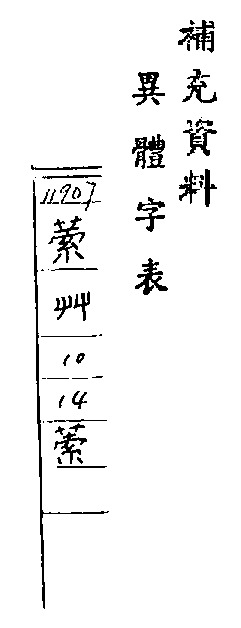 補充資料
異體字表
11907
艸
10
14